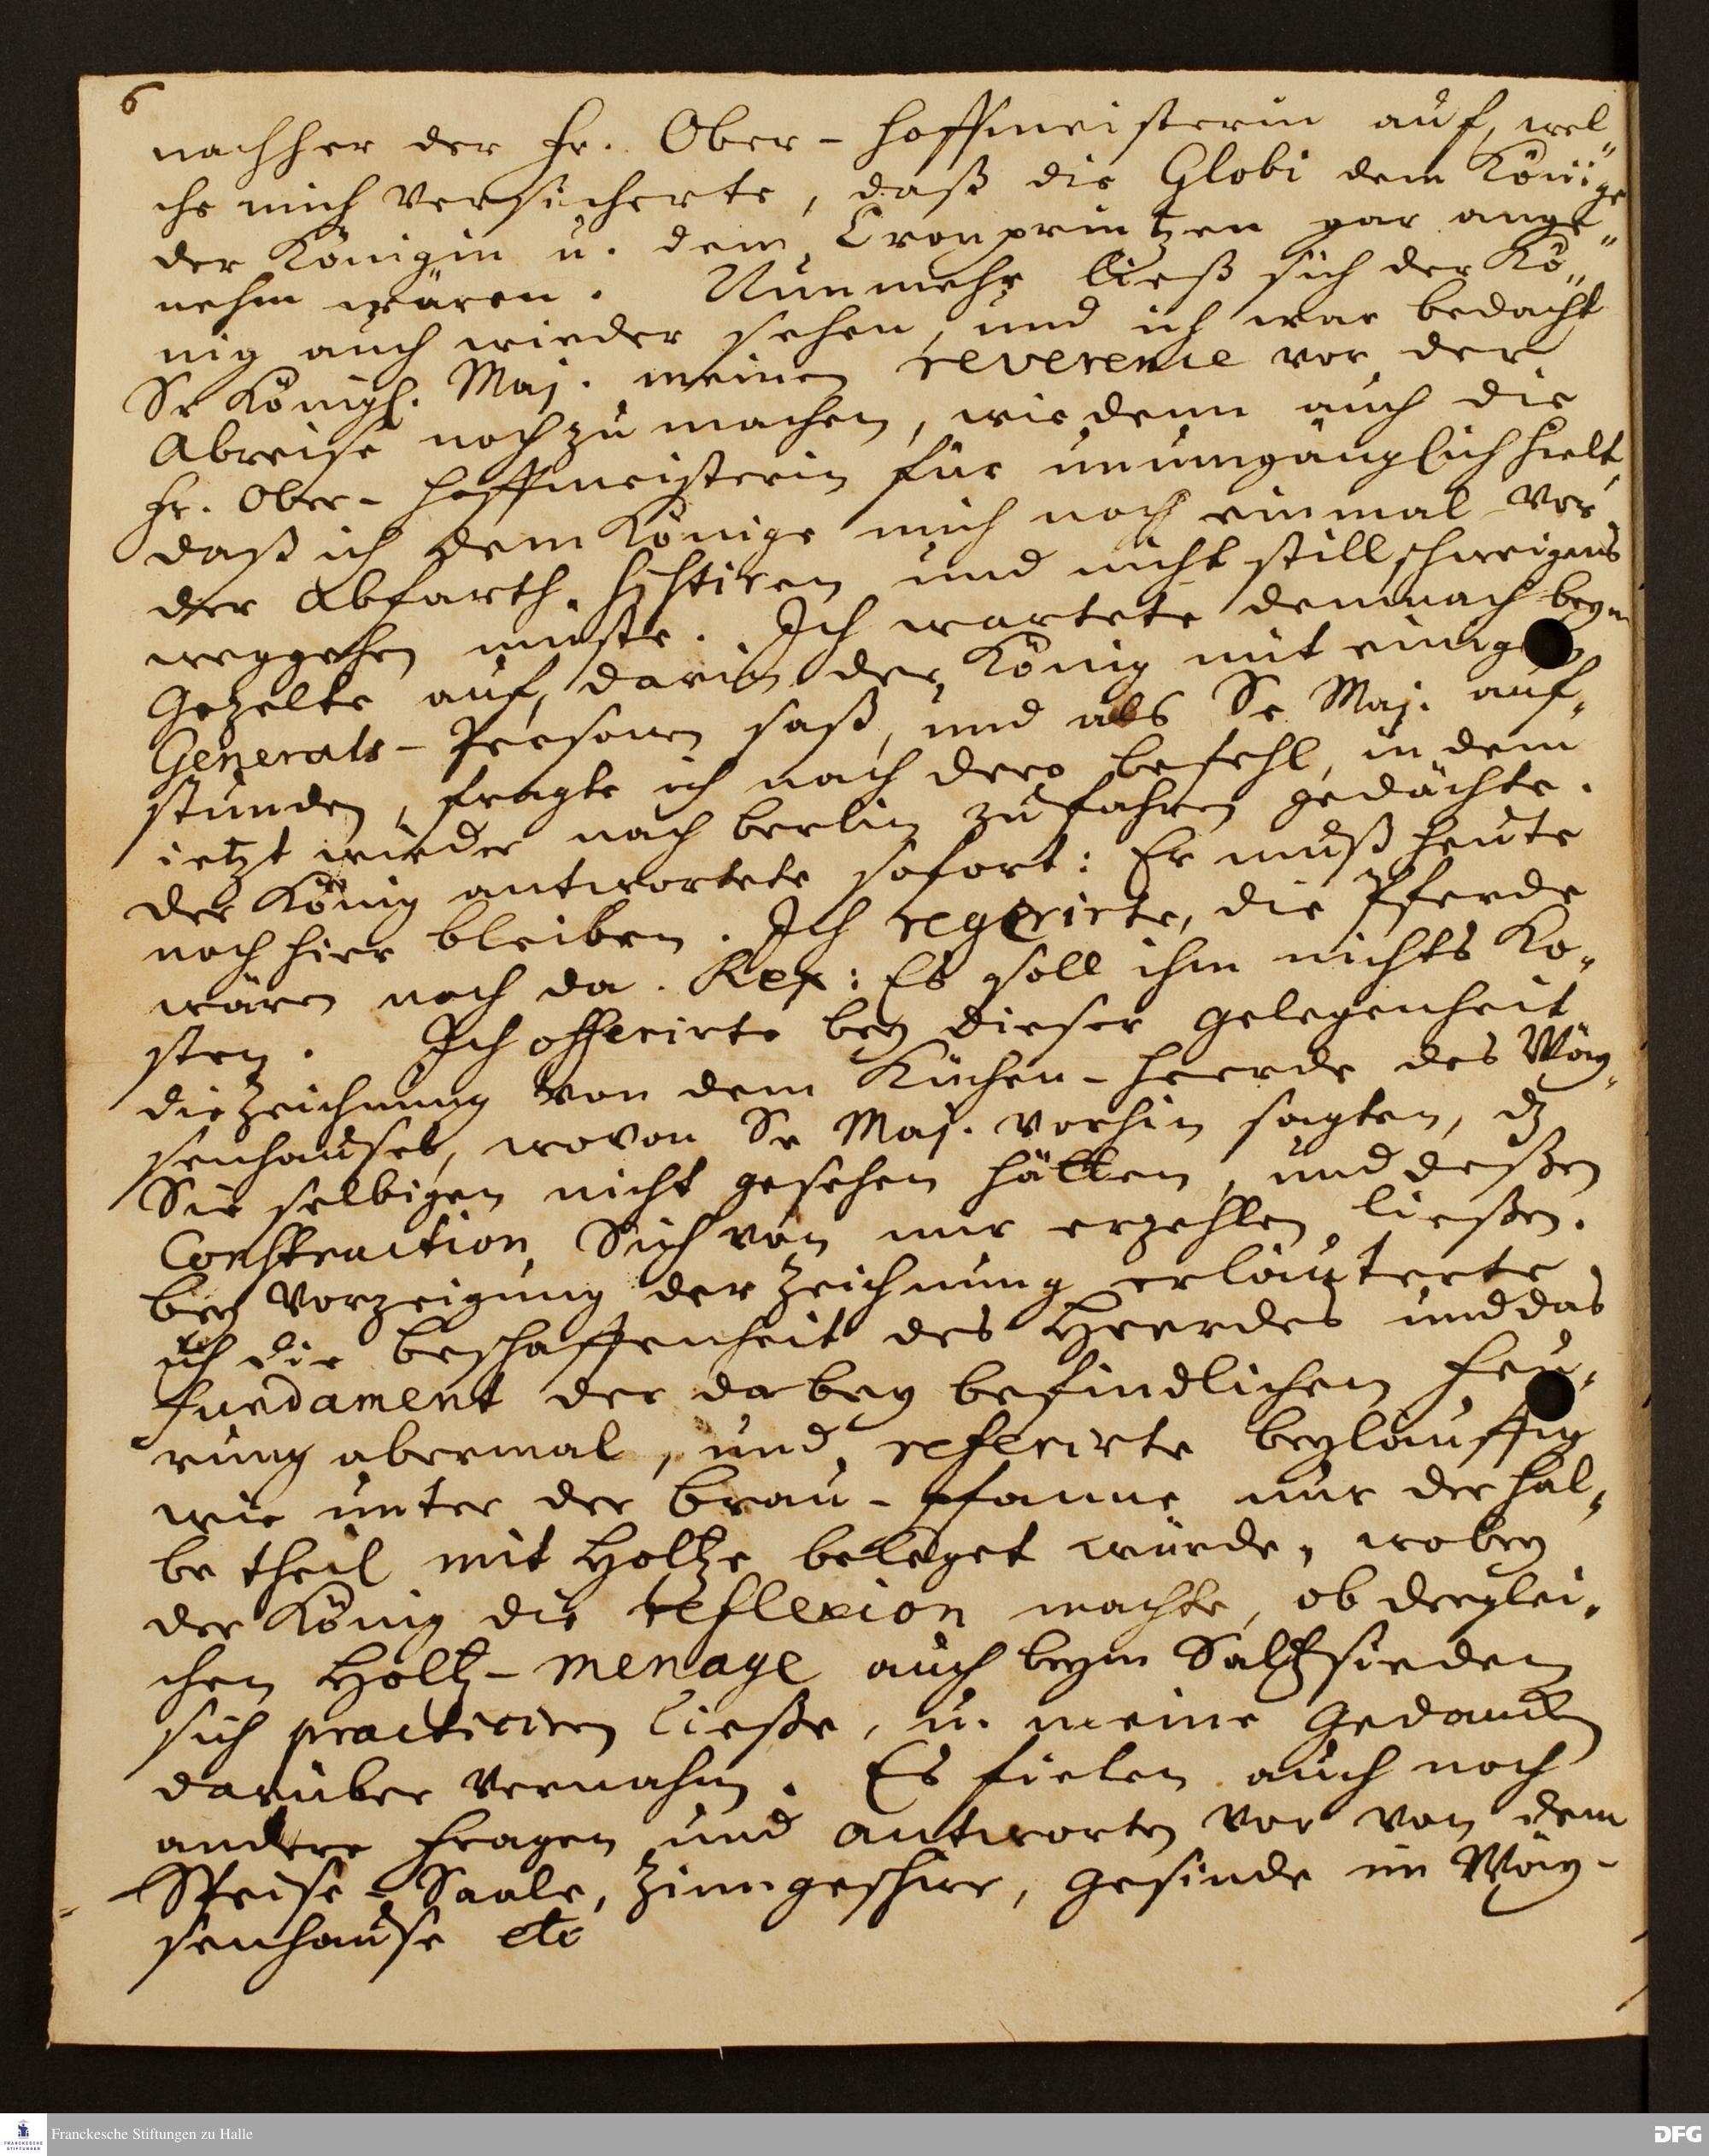 6
nachher der Fr. Ober-Hoffmeisterin auf, wel„
che mich versicherte, daß die Globi dem Könige
der Königin u. dem Cronprintzen gar ange„
nehm wären. Nunmehr ließ sich der Kö„
nig auch wieder sehen, und ich war bedacht
Sr Königl. Maj. meinen reverence vor der
Abreise noch zu machen, wie denn auch die
Fr. Ober-Hoffmeisterin für unumgänglich hielt,
daß ich dem Könige mich noch einmal vor
der Abfarth sistiren und nicht stillschweigens
weggehen müste. Ich wartete demnach beym
Gezelte auf, darin der König mit einigen
Generals-Personen saß, und als Se Maj. auf„
stunden, fragte ich nach dero befehl, indem
ietzt wieder nach berlin zu fahren gedächte.
der König antwortete sofort: Er muß heute
noch hier bleiben. Ich regerirte, die Pferde
wären noch da. Rex: Es soll ihm nichts Ko„
sten. Ich offerirte bey dieser gelegenheit
die Zeichnung von dem Küchen-Heerde des Wäy„
senhauses, wovon Se Maj. vorhin sagten, dz
Sie selbigen nicht gesehen hätten, und deßen
Construction Sich von mir erzehlen ließen.
bey Vorzeigung der Zeichnung erläuterte
ich die beschaffenheit des Heerdes und das
fundament der dabey befindlichen Feu„
rung abermal, und referirte beyläuffig
wie unter der Brau-pfanne nur der hal„
be theil mit Holtze beleget würde, wobey
der König die reflexion machte, ob derglei„
chen Holtz-menage auch beym Saltzsieden
sich practiciren ließe, u. meine Gedancken
darüber vernahm. Es fielen auch noch
andere Fragen und antworten vor von dem
Speise-Saale, Zinngeschirr, Gesinde im Wäy-
senhause etc
Franckesche Stiftungen zu Halle
FRANCKESCHE STIFTUNGEN
DFG